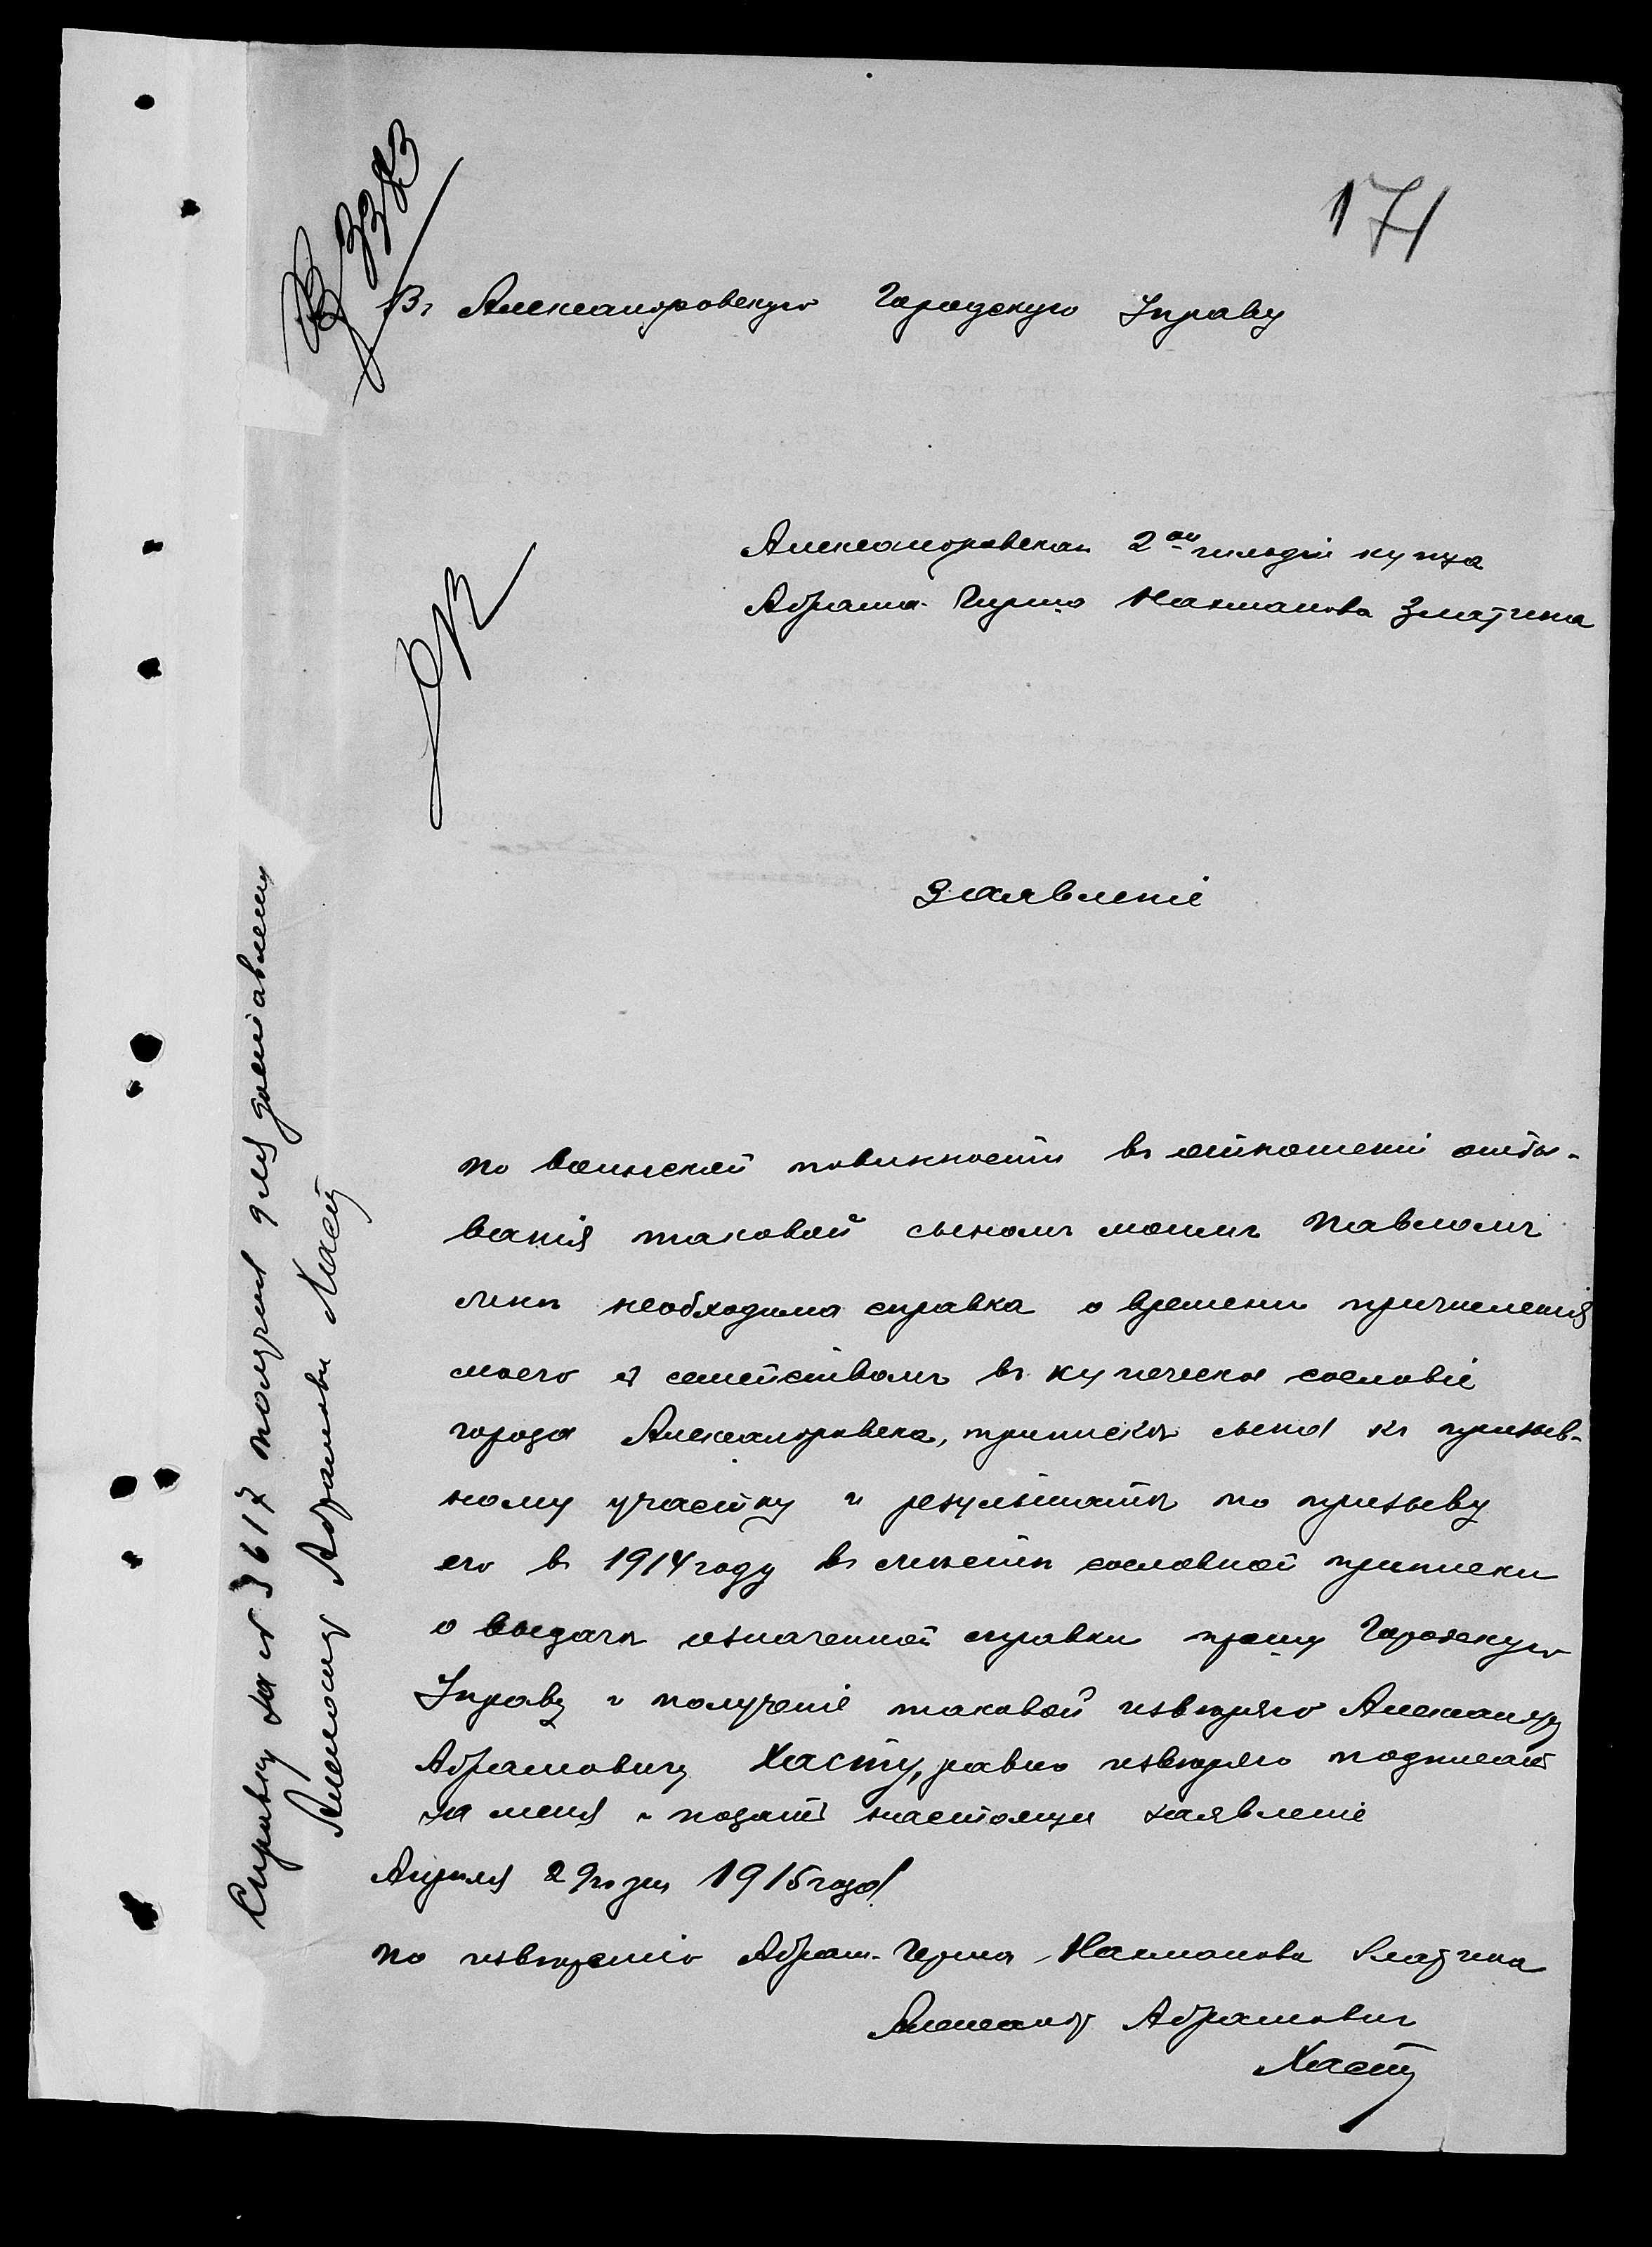 171
Въ Александровскую Городскую Управу
Александровскаго 2ой гильдіи купца
Абрама-Гирша Нахманова Златкина
Заявленіе
по воинской повинности въ отношеніи отбы-
ванія таковой сыномъ моимъ Павломъ
мнѣ необходима справка о времени причисленія
моего съ семействомъ въ купеческое сословіе
города Александровска, приписки сына къ призыв-
ному участку и результатѣ по призыву
его въ 1914 году въ мѣстѣ сословной приписки
о выдачѣ означенной справки прошу Городскую
Управу и полученіе таковой ввѣряю Александру
Абрамовичу Хасту, равно ввѣряю подписать
за меня и подать настоящее заявленіе
Апрѣля 29го дня 1915 года
по довѣренію Абрам-Герша Нахманова Златкина
Александръ Абрамовичъ
Хастъ
Справку за № 3617 получил для доставленія
Александръ Абрамовъ Хастъ